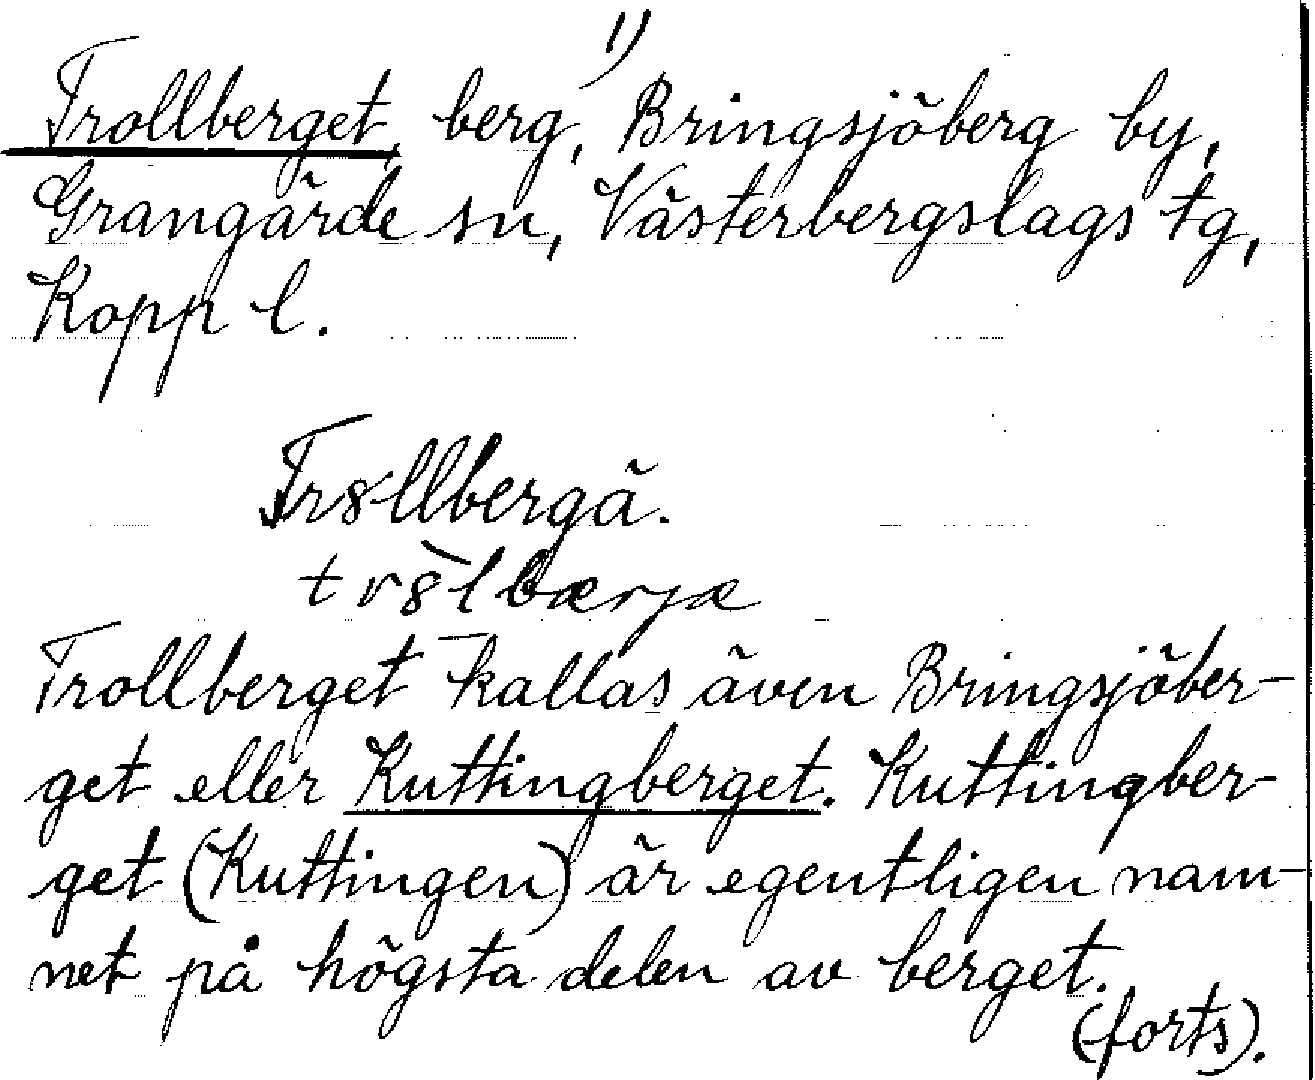 1)
Trollberget, berg, Bringsjöberg by,
Grangärde sn, Västerbergslags tg,
Kopp l.
Tr8llbergä.
tr8̀lbærjæ
Trollberget kallas även Bringsjöber-
get eller Kuttingberget. Kuttingber-
get (Kuttingen) är egentligen nam-
net på högsta delen av berget.
(forts).